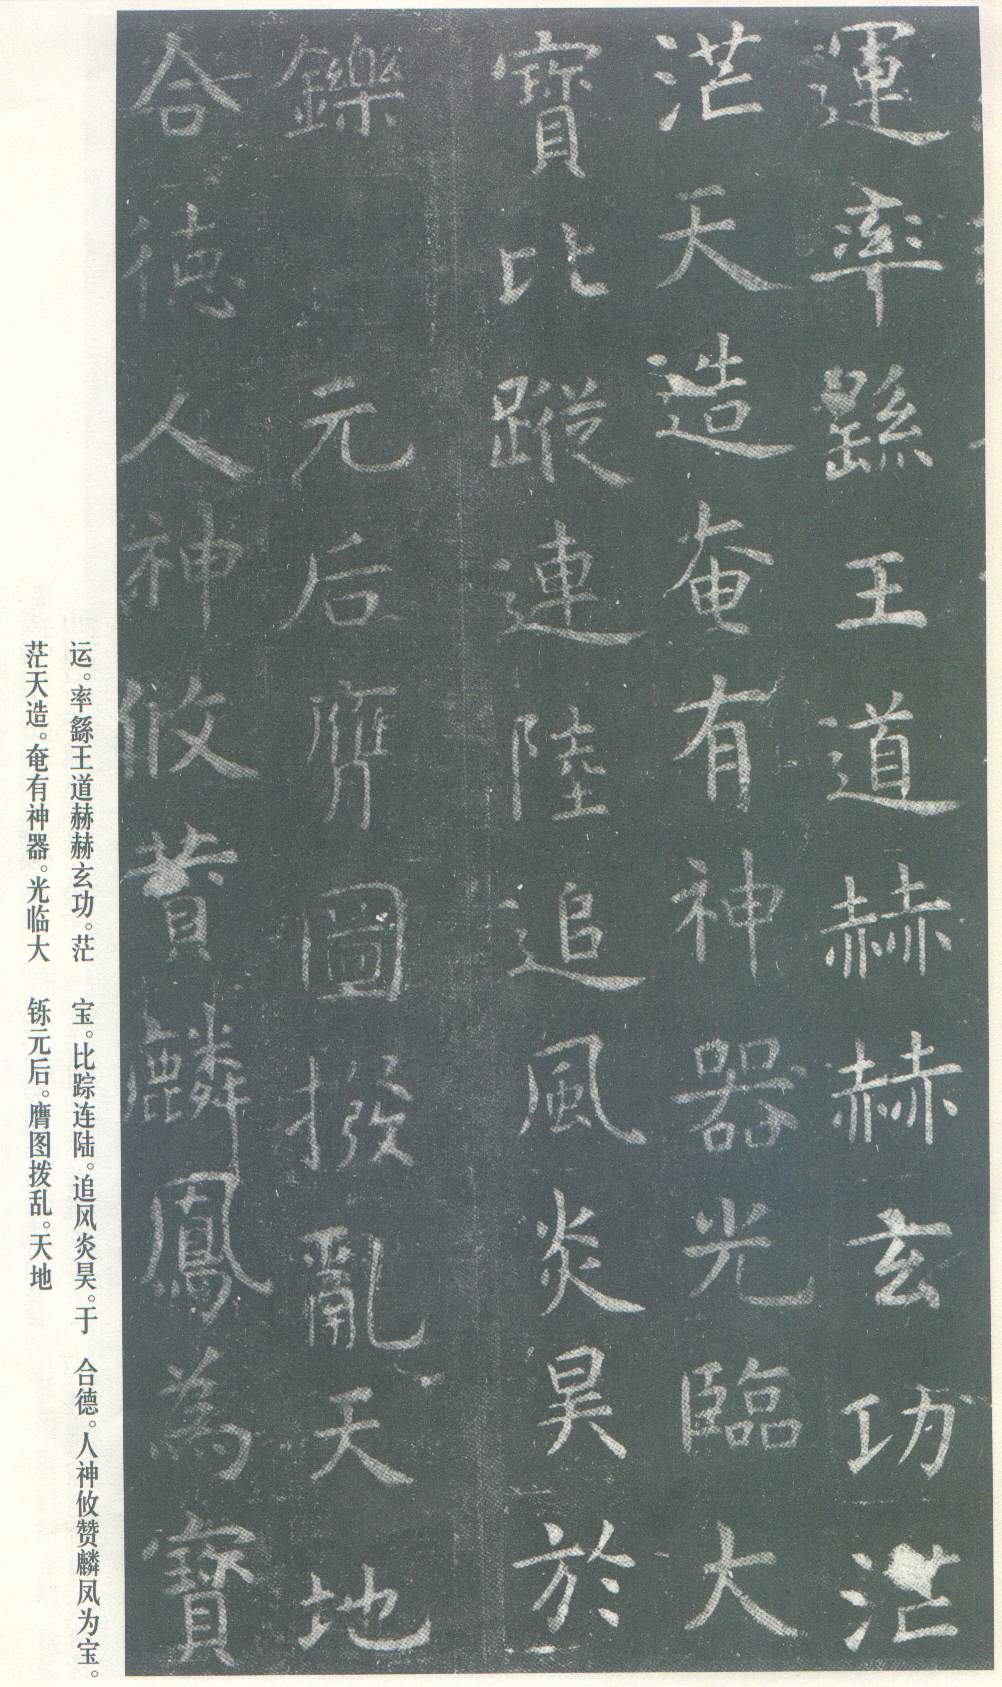 運率繇王道赫赫玄功茫
茫天造奄有神器光臨大
寶比蹤連陸追風炎昊於
鑠元后膺圖撥亂天地
合德人神攸贊麟鳳為寶
运。率繇王道赫赫玄功。茫
茫天造。奄有神器。光临大
宝。比踪连陆。追风炎昊。于
铄元后。膺图拨乱。天地
合德。人神攸赞麟凤为宝。